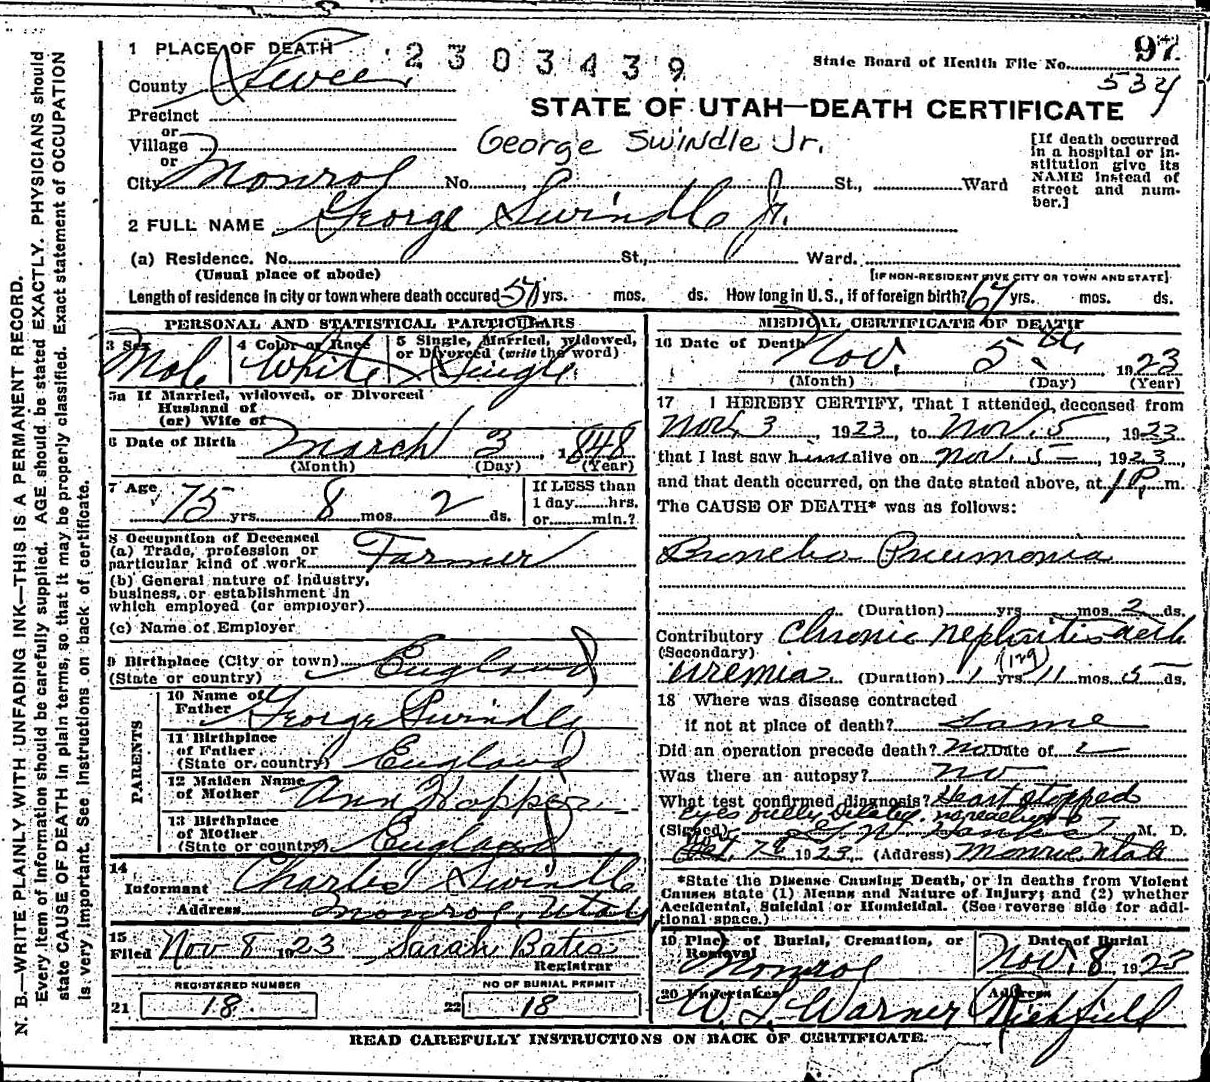 N. B.—WRITE PLAINLY WITH UNFADING INK—THIS IS A PERMANENT RECORD.
Every item of information should be carefully supplied. AGE should be stated EXACTLY. PHYSICIANS should
state CAUSE OF DEATH in plain terms, so that it may be properly classified. Exact statement of OCCUPATION
is very important. See instructions on back of certificate.
1 PLACE OF DEATH 2303439 97
State Board of Health File No. 534
County Sevier
STATE OF UTAH—DEATH CERTIFICATE
Precinct
or
Village George Swindle Jr.
or
City Monroe No. St., Ward
[If death occurred
in a hospital or in-
stitution give its
NAME instead of
street and num-
ber.]
2 FULL NAME George Swindle Jr.
(a) Residence. No. St., Ward.
(Usual place of abode) [IF NON-RESIDENT GIVE CITY OR TOWN AND STATE]
Length of residence in city or town where death occured yrs. mos. ds. How long in U.S., if of foreign birth? 67 yrs. mos. ds.
PERSONAL AND STATISTICAL PARTICULARS
3 Sex Male
4 Color or Race White
5 Single, Married, Widowed,
or Divorced (write the word) Single
5a If Married, widowed, or Divorced
Husband of
(or) Wife of
6 Date of Birth March 3, 1848
(Month) (Day) (Year)
7 Age 75 yrs 8 mos. 2 ds.
If LESS than
1 day hrs.
or min.?
8 Occupation of Deceased
(a) Trade, profession or
particular kind of work Farmer
(b) General nature of industry,
business, or establishment in
which employed (or employer)
(c) Name of Employer
9 Birthplace (City or town)
(State or country) England
PARENTS
10 Name of
Father George Swindle
11 Birthplace
of Father
(State or country) England
12 Maiden Name
of Mother Ann Hopper
13 Birthplace
of Mother
(State or country) England
14
Informant Charles Swindle
Address Monroe, Utah
15
Filed Nov 8 1923 Sarah Bates
Registrar
REGISTERED NUMBER
21 18
NO OF BURIAL PERMIT
22 18
MEDICAL CERTIFICATE OF DEATH
16 Date of Death Nov. 5th 1923
(Month) (Day) (Year)
17 I HEREBY CERTIFY, That I attended deceased from
Nov. 3, 1923, to Nov. 5, 1923
that I last saw him alive on Nov. 5, 1923,
and that death occurred, on the date stated above, at 1 P. m.
The CAUSE OF DEATH* was as follows:
Broncho Pneumonia
(Duration) yrs mos. 2 ds.
Contributory Chronic Nephritis with
(Secondary)
uremia (129) (Duration) 1 yrs 11 mos. 5 ds.
18 Where was disease contracted
if not at place of death? Same
Did an operation precede death? no Date of
Was there an autopsy? no
What test confirmed diagnosis? Heart stopped
eyes fully dilated
(Signed) M. D.
1923 (Address) Monroe Utah
*State the Disease Causing Death, or in deaths from Violent
Causes state (1) Means and Nature of Injury; and (2) whether
Accidental, Suicidal or Homicidal. (See reverse side for addi-
tional space.)
19 Place of Burial, Cremation, or
Removal Monroe
Date of Burial
Nov. 8 1923
20 Undertaker W. L. Warner
Address Richfield
READ CAREFULLY INSTRUCTIONS ON BACK OF CERTIFICATE.